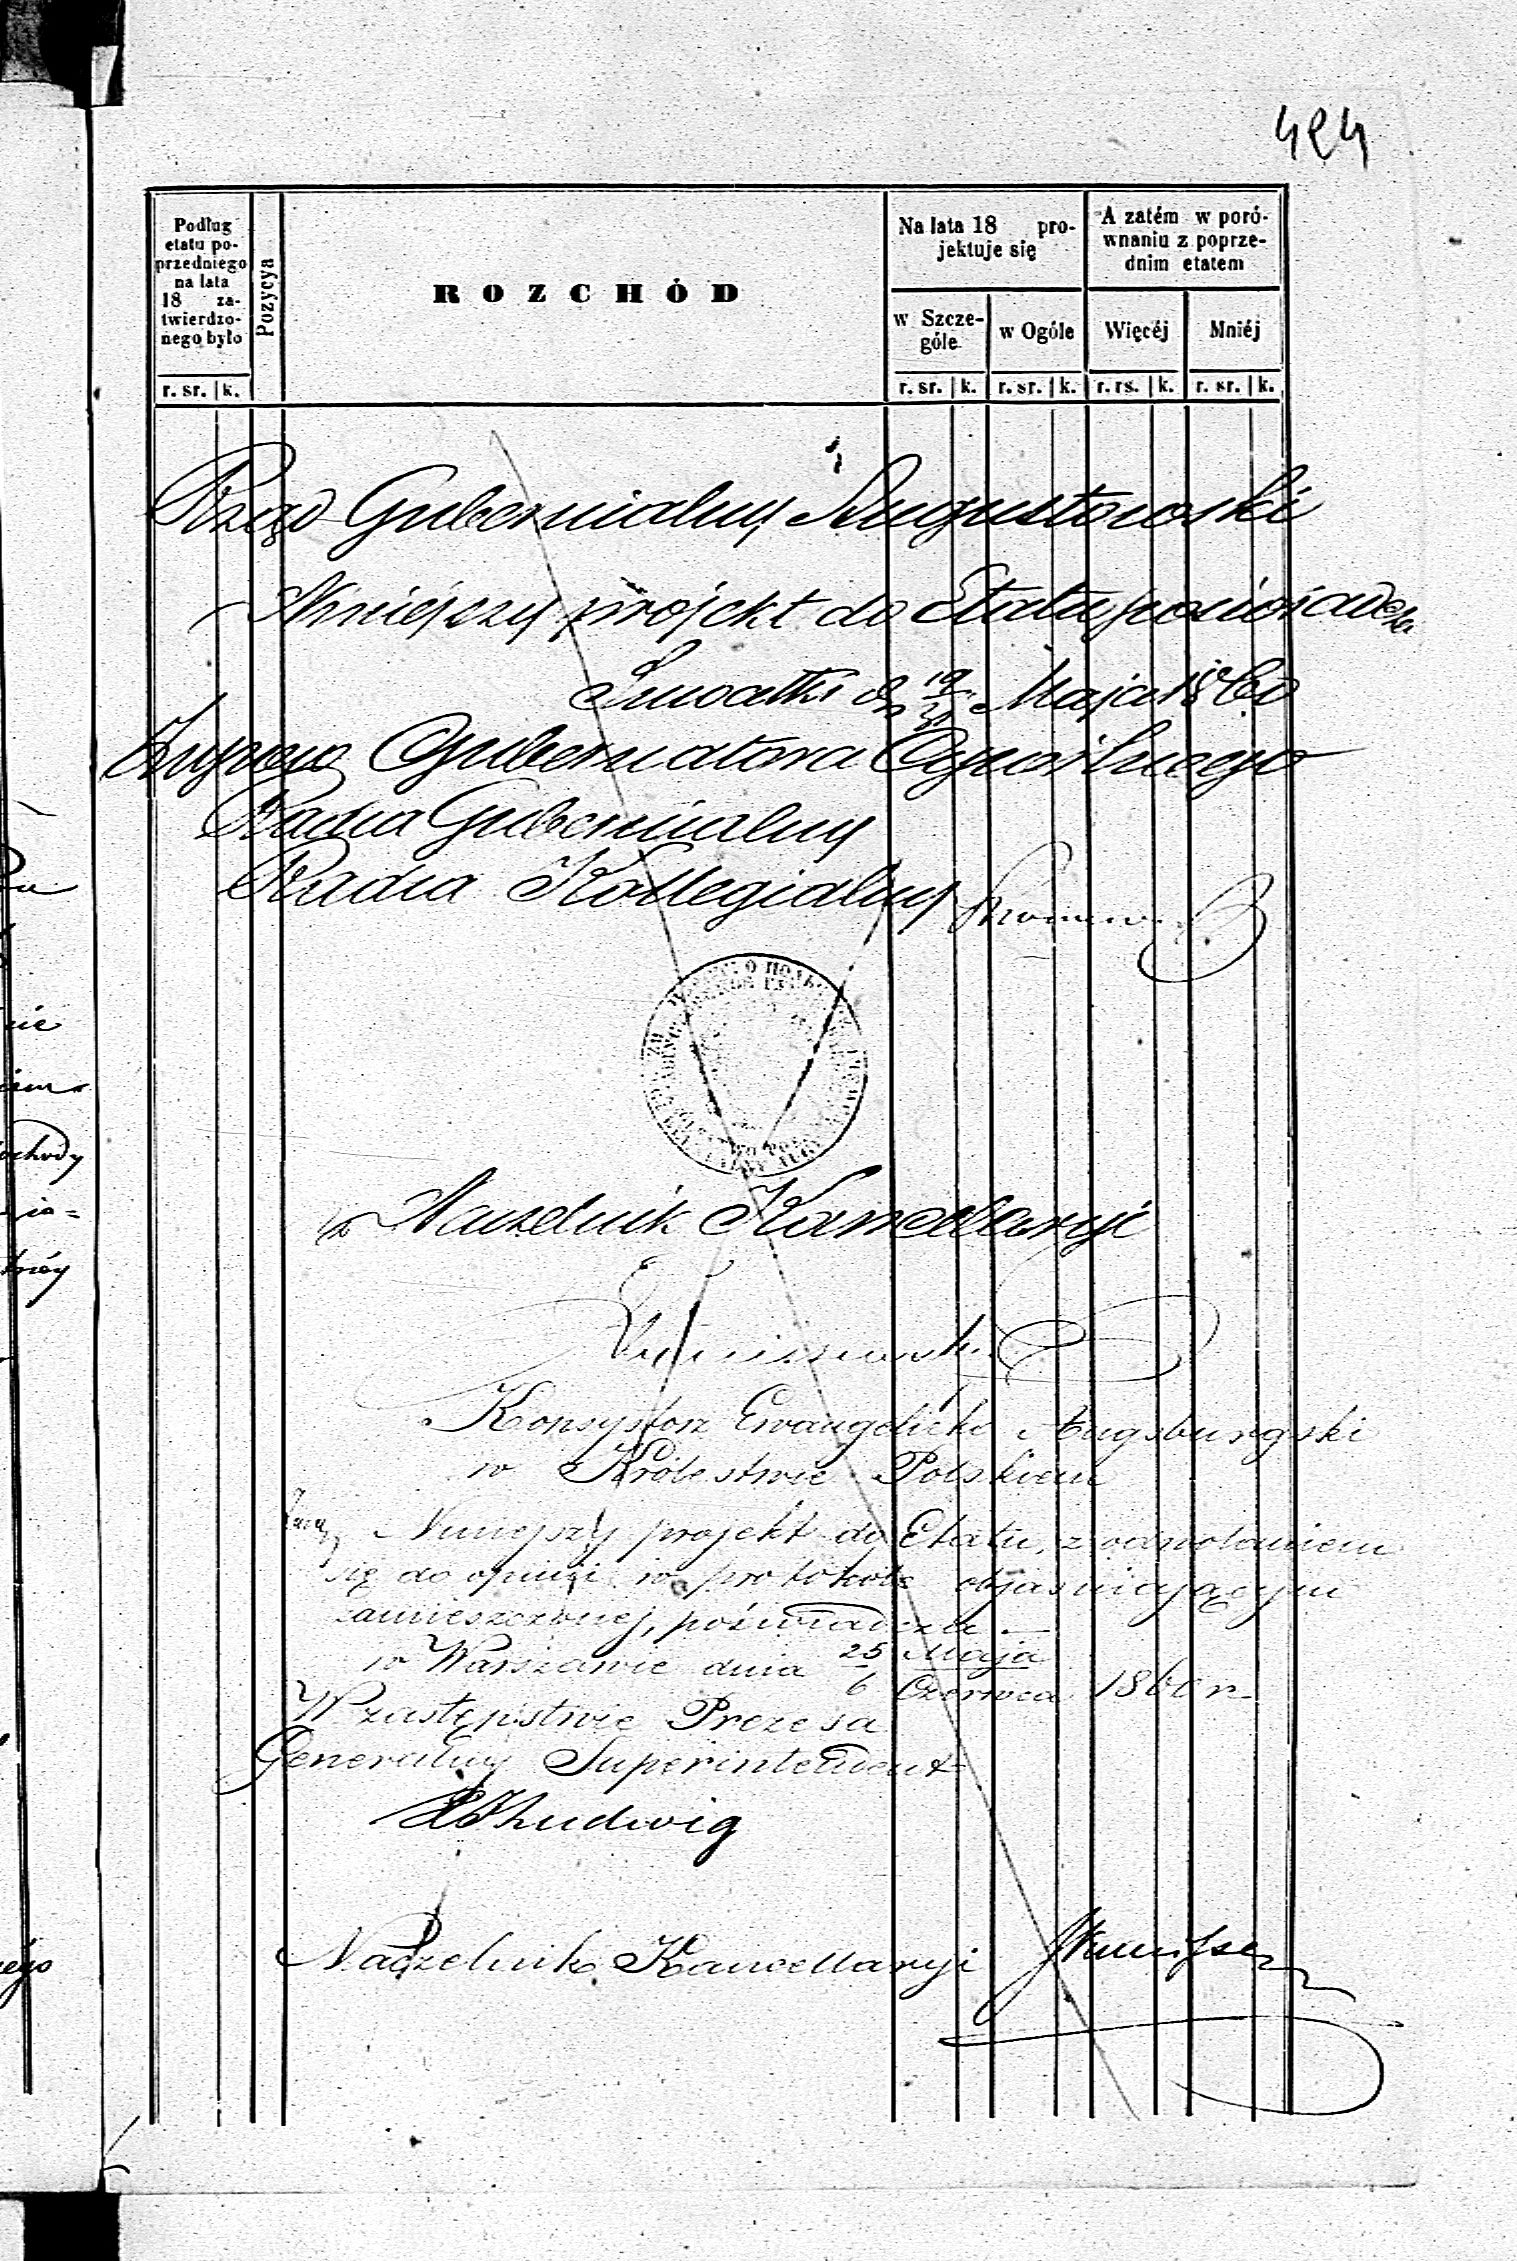 424
Podług
etatu po-
przedniego
na lata
18 za-
twierdzo-
nego było
r. sr. k.
Pozycya
ROZCHÓD
Na lata 18 pro-
jektuje się
w Szcze-
góle
r. sr. k.
w Ogóle
r. sr. k.
A zatém w poró-
wnaniu z poprze-
dnim etatem
Więcéj
r. rs. k.
Mniéj
r. sr. k.
Rząd Gubernialny Augustowski
Niniejszy projekt do Etatu poświadcza
Suwałki d. 19/31 Maja 1860
Gubernatora Cywilnego
Radca Gubernialny
Radca Kollegialny
Naczelnik Kancellaryi
Konsystorz Ewangelicko Augsburgski
w Królestwie Polskiem
Niniejszy projekt do Etatu, z odwołaniem
się do opinii w protokole objaśniającym
zamieszczonej, poświadcza.—
w Warszawie dnia 25 Maja / 6 Czerwca 1860 r.
W zastępstwie Prezesa
Generalny Superintendent
Ludwig
Naczelnik Kancellaryi